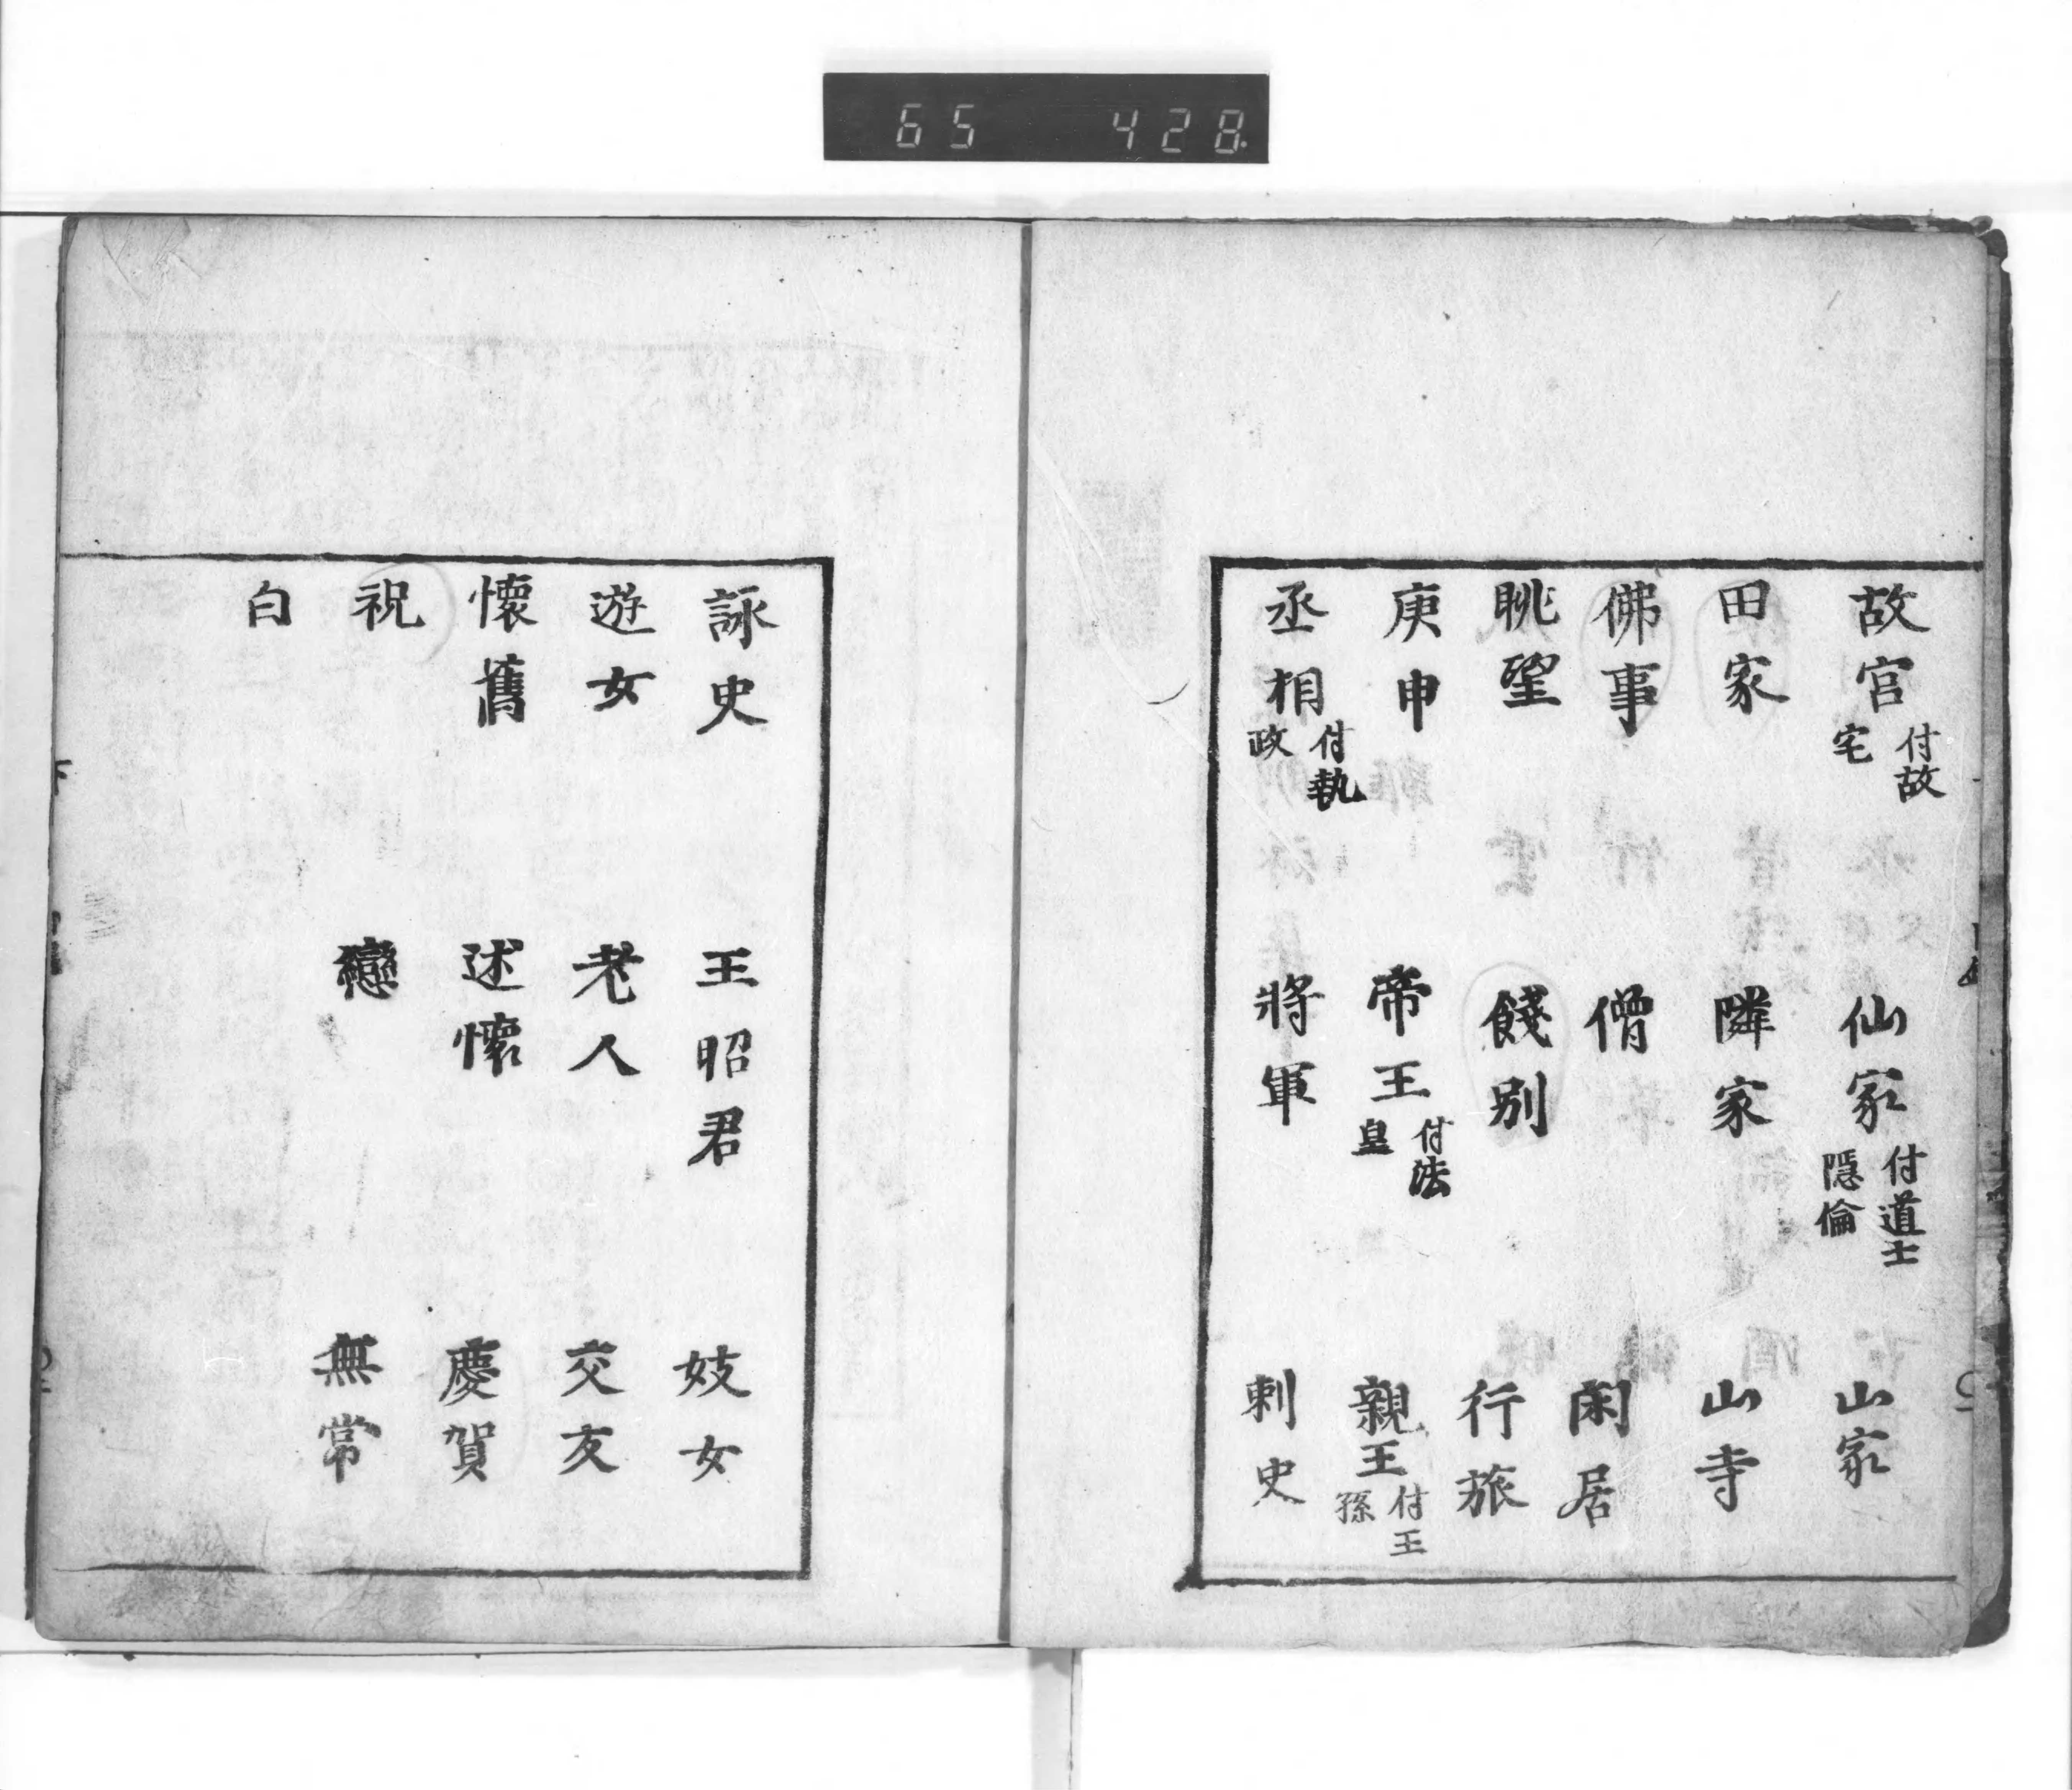 65 428
故宮 付故宅 仙家 付道士隱倫 山家
田家 隣家 山寺
佛事 僧 閑居
眺望 餞別 行旅
庚申 帝王 付法皇 親王 付王孫
丞相 付執政 將軍 刺史
詠史 王昭君 妓女
遊女 老人 交友
懷舊 述懷 慶賀
祝 戀 無常
白
下